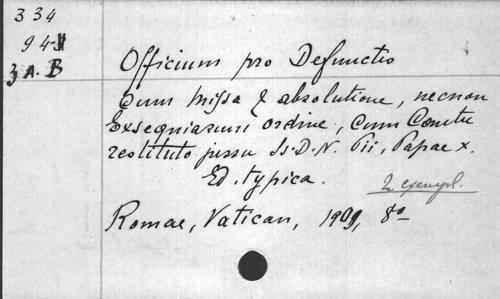 334
94-II
3 A. B
Officium pro Defunctis
cum missa & absolutione, necnon
Exsequiarum ordine, cum Cantu
restituto jussu Ss. D. N. Pii, Papae X.
Ed. typica.
2 exempl.
Romae, Vatican, 1909, 8º